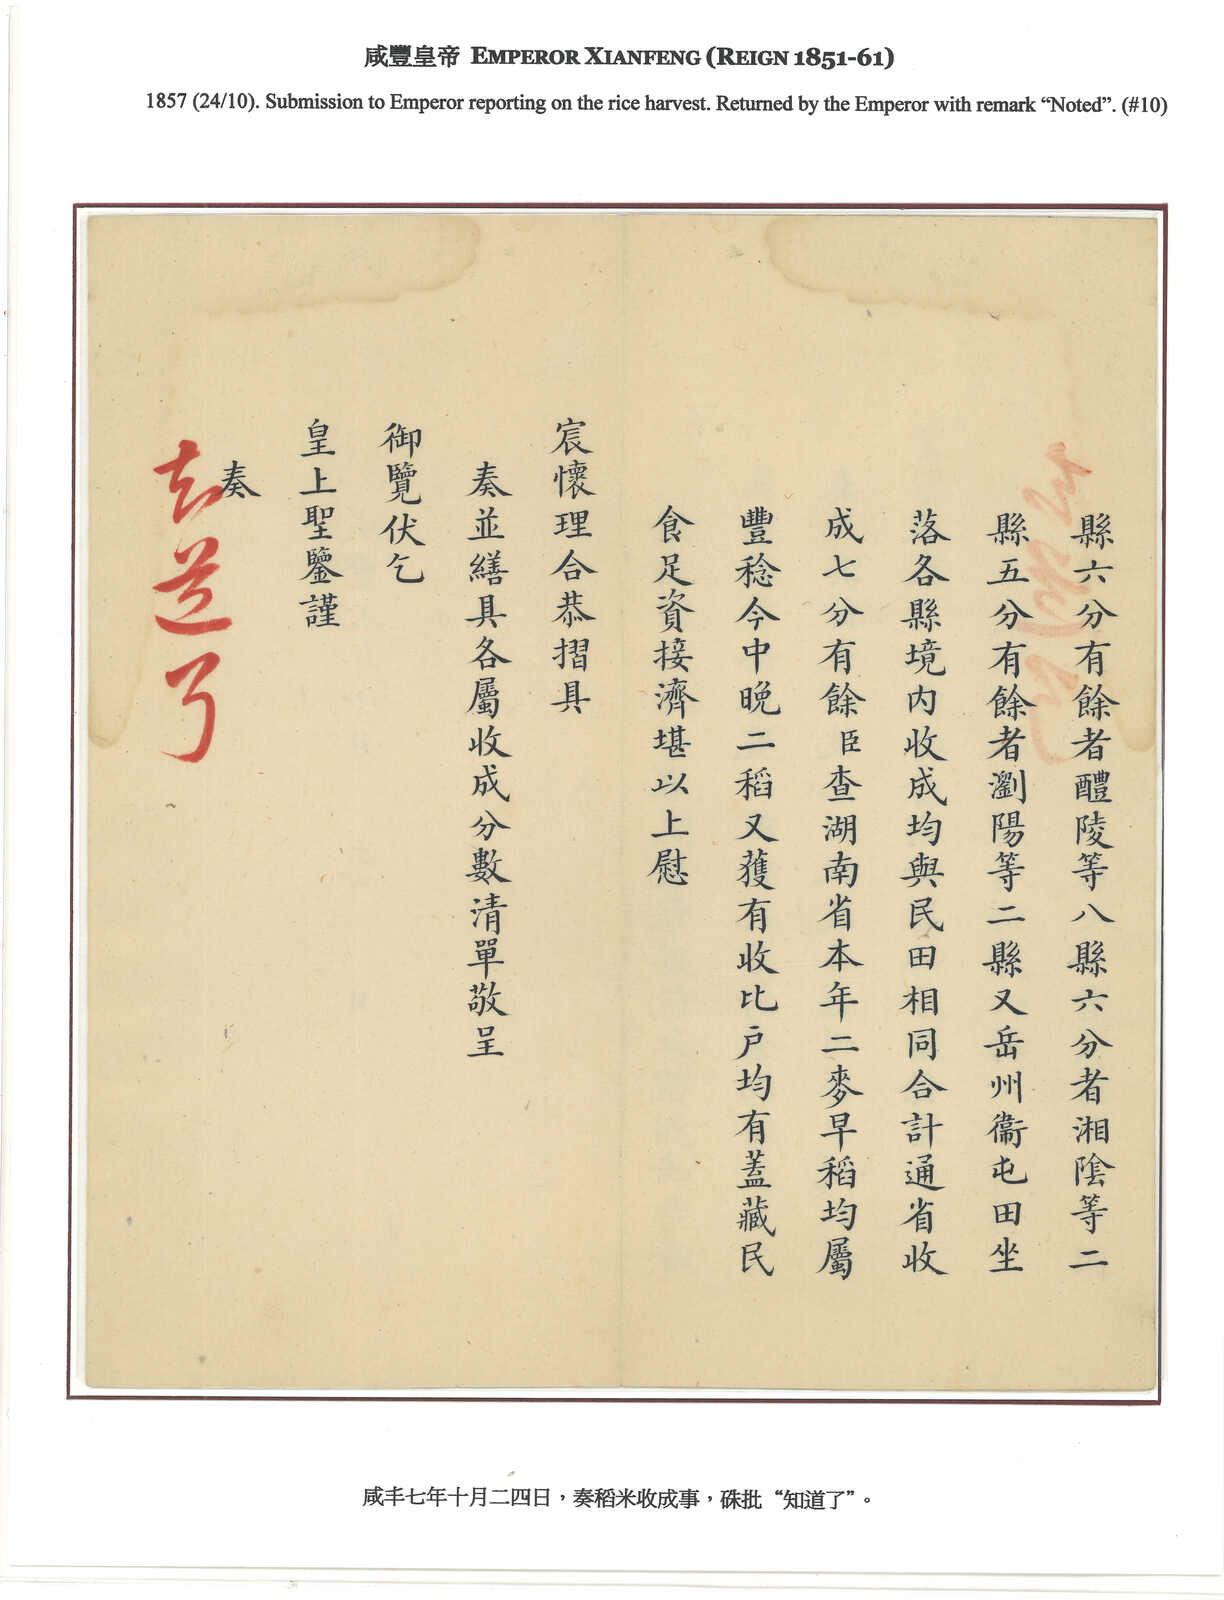 咸豐皇帝 EMPEROR XIANFENG (REIGN 1851-61)
1857 (24/10). Submission to Emperor reporting on the rice harvest. Returned by the Emperor with remark “Noted”. (#10)
縣六分有餘者醴陵等八縣六分者湘陰等二
縣五分有餘者瀏陽等二縣又岳州衞屯田坐
落各縣境内收成均與民田相同合計通省收
成七分有餘臣查湖南省本年二麥早稻均屬
豐稔今中晚二稻又獲有收比户均有蓋藏民
食足資接濟堪以上慰
宸懷理合恭摺具
奏並繕具各屬收成分數清單敬呈
御覽伏乞
皇上聖鑒謹
奏
知道了
咸丰七年十月二四日，奏稻米收成事，硃批“知道了”。